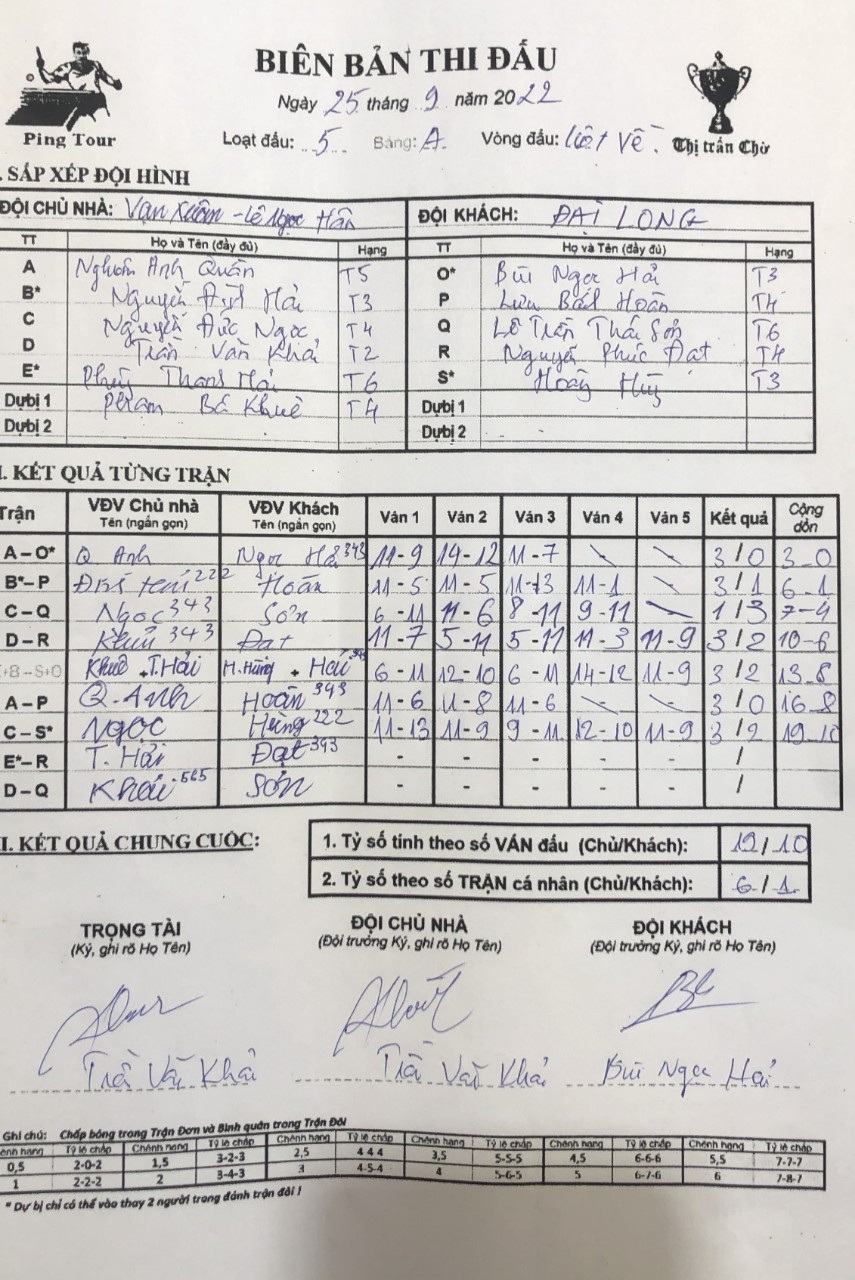 BIÊN BẢN THI ĐẤU
Ngày 25 tháng 9 năm 2022
Ping Tour
Loạt đấu: 5 Bảng: A. Vòng đấu: lượt về.
Thị trấn Chờ
. SẮP XẾP ĐỘI HÌNH
ĐỘI CHỦ NHÀ: Vạn Xuân - Lê Ngọc Hân ĐỘI KHÁCH: ĐẠI LONG
TT Họ và Tên (đầy đủ) Hạng TT Họ và Tên (đầy đủ) Hạng
A Anh Quân T5 O* Bùi Ngọc Hải T3
B* Nguyễn Hải T3 P Lưu Bách Hoàn T4
C Nguyễn Đức Ngọc T4 Q Lê Trần Thái Sơn T6
D Trần Văn Khải T2 R Nguyễn Phúc Đạt T4
E* Thanh Hải T6 S* Hoàng T3
Dựbị 1 Phạm Bá Khuê T4 Dựbị 1
Dựbị 2 Dựbị 2
I. KẾT QUẢ TỪNG TRẬN
Trận VĐV Chủ nhà Tên (ngắn gọn) VĐV Khách Tên (ngắn gọn) Ván 1 Ván 2 Ván 3 Ván 4 Ván 5 Kết quả Cộng dồn
A – O* Q. Anh Ngọc Hải 343 11-9 14-12 11-7 \ \ 3/0 3-0
B*– P 222 Hoàn 11-5 11-5 11-13 11-1 \ 3/1 6-1
C – Q Ngọc 343 Sơn 6-11 11-6 8-11 9-11 \ 1/3 7-4
D – R 343 Đạt 11-7 5-11 5-11 11-3 11-9 3/2 10-6
+B – S+O Khuê + T.Hải H. Hùng + Hải 6-11 12-10 6-11 14-12 11-9 3/2 13-8
A – P Q. Anh Hoàn 343 11-6 11-8 11-6 \ \ 3/0 16-8
C – S* Ngọc Hùng 222 11-13 11-9 9-11 12-10 11-9 3/2 19-10
E*– R T. Hải Đạt 343 - - - - - /
D – Q Khải 565 Sơn - - - - - /
I. KẾT QUẢ CHUNG CUỘC:
1. Tỷ số tính theo số VÁN đấu (Chủ/Khách): 19/10
2. Tỷ số theo số TRẬN cá nhân (Chủ/Khách): 6/1
TRỌNG TÀI ĐỘI CHỦ NHÀ ĐỘI KHÁCH
(Ký, ghi rõ Họ Tên) (Đội trưởng Ký, ghi rõ Họ Tên) (Đội trưởng Ký, ghi rõ Họ Tên)
Trần Văn Khải Trần Văn Khải Bùi Ngọc Hải
Ghi chú: Chấp bóng trong Trận Đơn và Bình quân trong Trận Đôi
ênh hạng Tỷ lệ chấp Chênh hạng Tỷ lệ chấp Chênh hạng Tỷ lệ chấp Chênh hạng Tỷ lệ chấp Chênh hạng Tỷ lệ chấp Chênh hạng Tỷ lệ chấp
0,5 2-0-2 1,5 3-2-3 2,5 4 4 4 3,5 5-5-5 4,5 6-6-6 5,5 7-7-7
1 2-2-2 2 3-4-3 3 4-5-4 4 5-6-5 5 6-7-6 6 7-8-7
* Dự bị chỉ có thể vào thay 2 người trong đánh trận đôi !